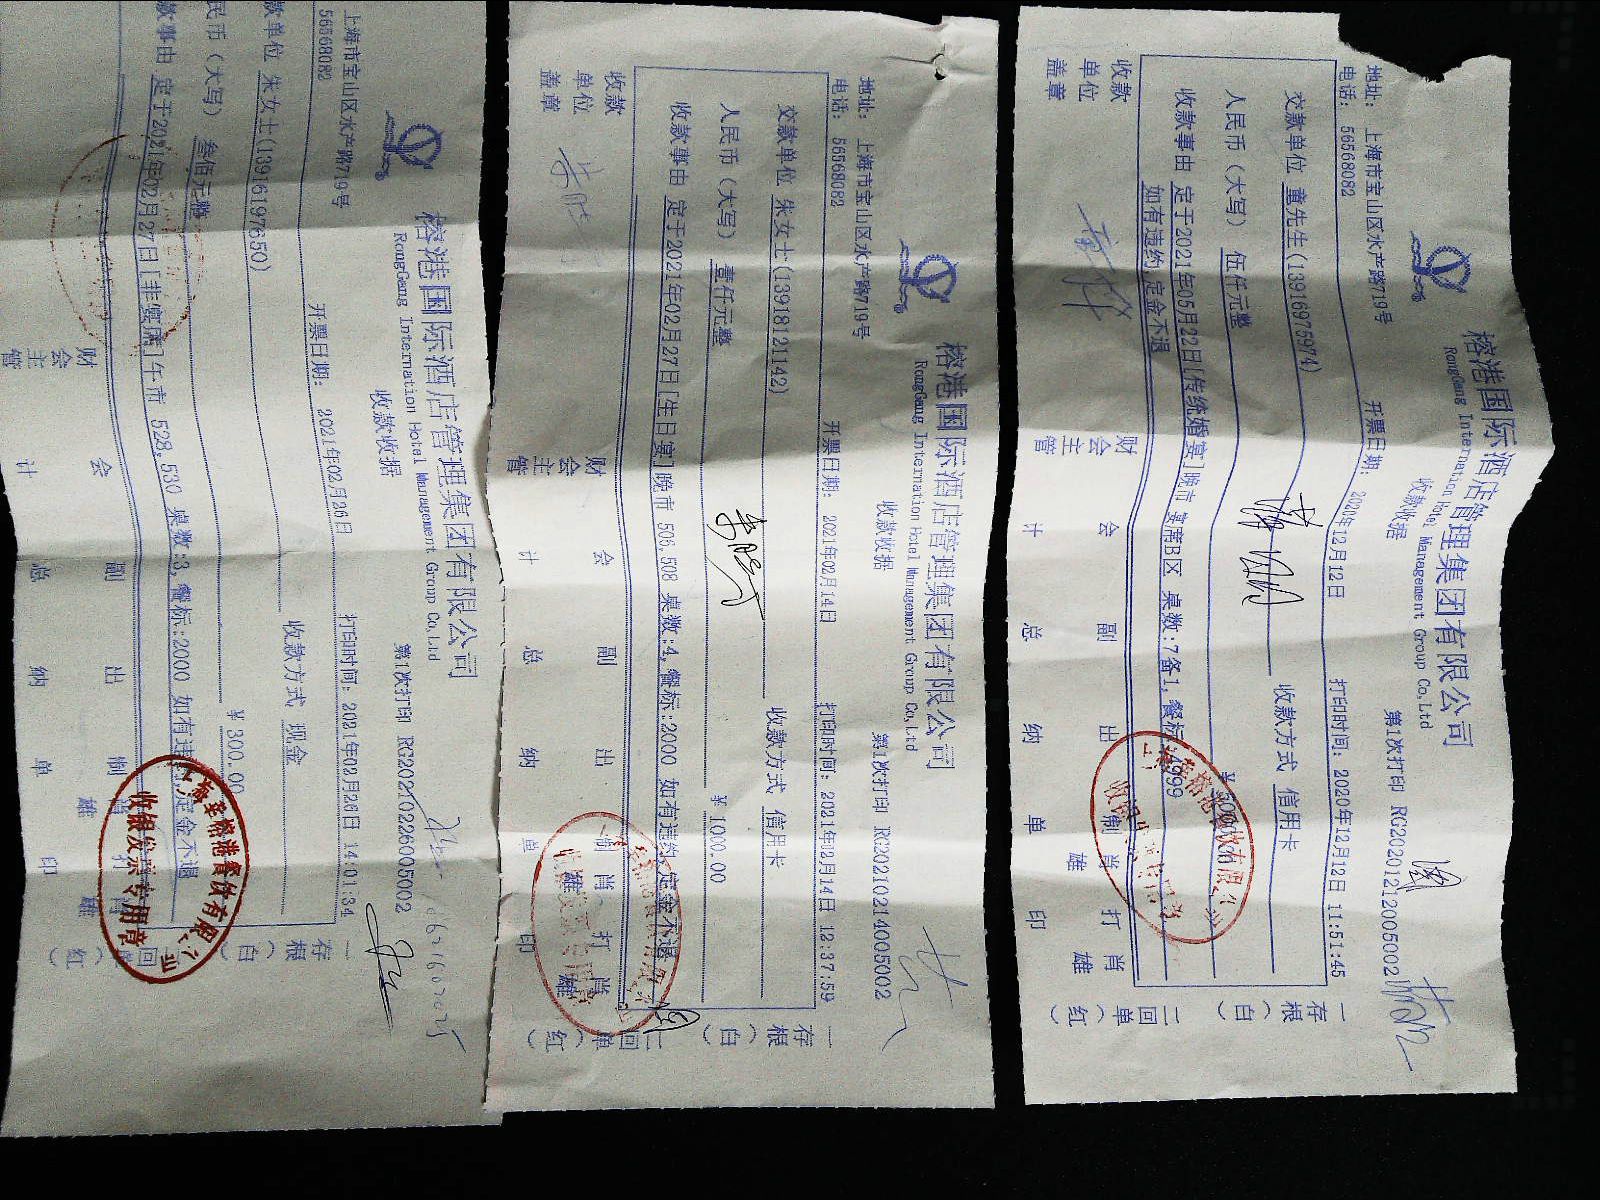 榕港国际酒店管理集团有限公司
RongGang International Hotel Management Group Co,Ltd
收款收据
第1次打印 RG20210226005002
上海市宝山区水产路719号
56568082
开票日期: 2021年02月26日
打印时间: 2021年02月26日 14:01:34
款单位 朱女士(13916197650)
收款方式 现金
民币(大写) 叁佰元整
¥ 300.00
款事由 定于2021年02月27日[非宴席]午市 528,530 桌数:3,餐标:2000 如有违约,定金不退
一存根(白)
二回单(红)
财会主管
会计
副总
出纳
制单
肖雄
打印
肖雄
收银发票专用章
榕港国际酒店管理集团有限公司
RongGang International Hotel Management Group Co,Ltd
收款收据
第1次打印 RG20210214005002
地址: 上海市宝山区水产路719号
电话: 56568082
开票日期: 2021年02月14日
打印时间: 2021年02月14日 12:37:59
交款单位 朱女士(13918121142)
收款方式 信用卡
人民币(大写) 壹仟元整
¥ 1000.00
收款事由 定于2021年02月27日[生日宴]晚市 506,508 桌数:4,餐标:2000 如有违约,定金不退
一存根(白)
二回单(红)
收款单位盖章
财会主管
会计
副总
出纳
制单
肖雄
打印
肖雄
榕港国际酒店管理集团有限公司
RongGang International Hotel Management Group Co,Ltd
收款收据
第1次打印 RG20201212005002
地址: 上海市宝山区水产路719号
电话: 56568082
开票日期: 2020年12月12日
打印时间: 2020年12月12日 11:51:45
交款单位 童先生(13916975974)
收款方式 信用卡
人民币(大写) 伍仟元整
收款事由 定于2021年05月22日[传统婚宴]晚市 宴席B区 桌数:7备1,餐标:4999
如有违约,定金不退
一存根(白)
二回单(红)
收款单位盖章
财会主管
会计
副总
出纳
制单
肖雄
打印
肖雄